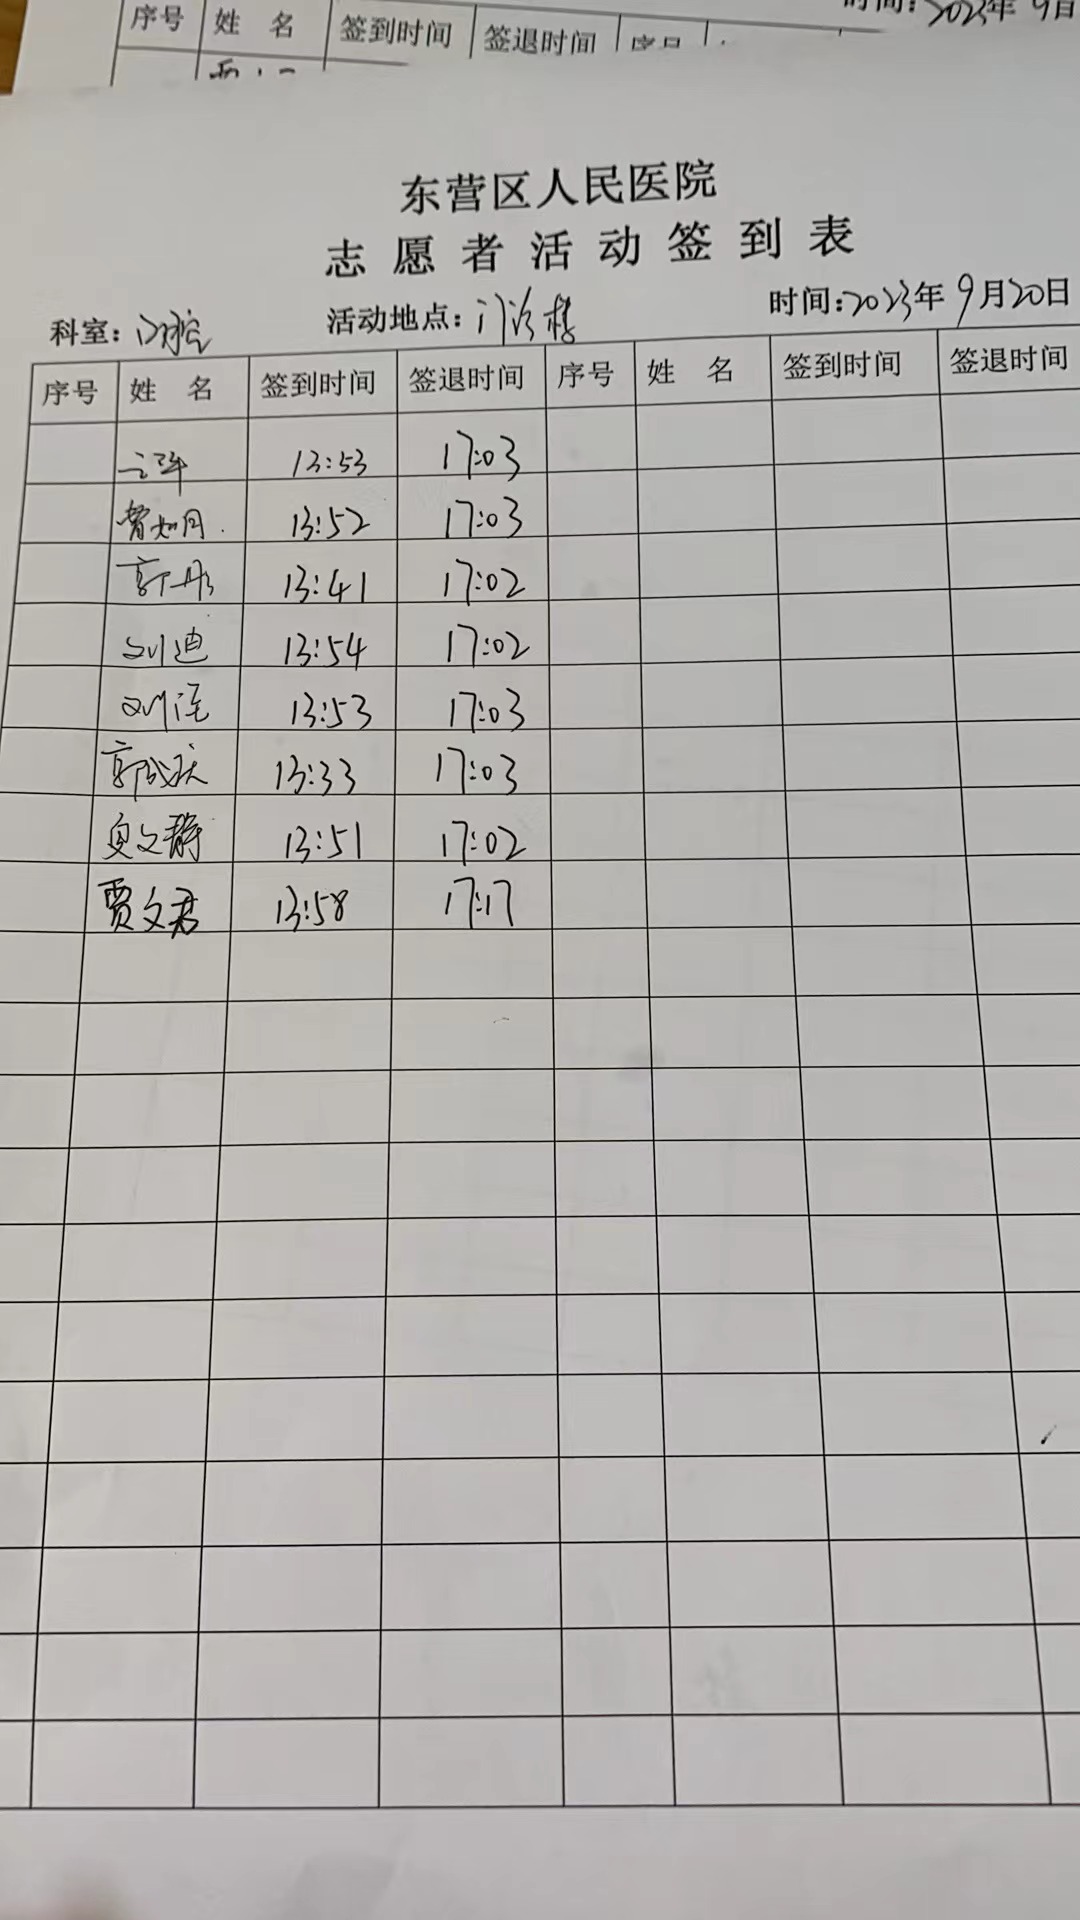 序号 姓 名 签到时间 签退时间 序号
时间:2023年9月
东营区人民医院
志愿者活动签到表
科室:口腔 活动地点:门诊楼 时间:2023年9月20日
序号 姓 名 签到时间 签退时间 序号 姓 名 签到时间 签退时间
13:53 17:03
曾如月 13:52 17:03
郭彤 13:41 17:02
刘迪 13:54 17:02
刘 13:53 17:03
郭成庆 13:33 17:03
文静 13:51 17:02
贾文君 13:58 17:17